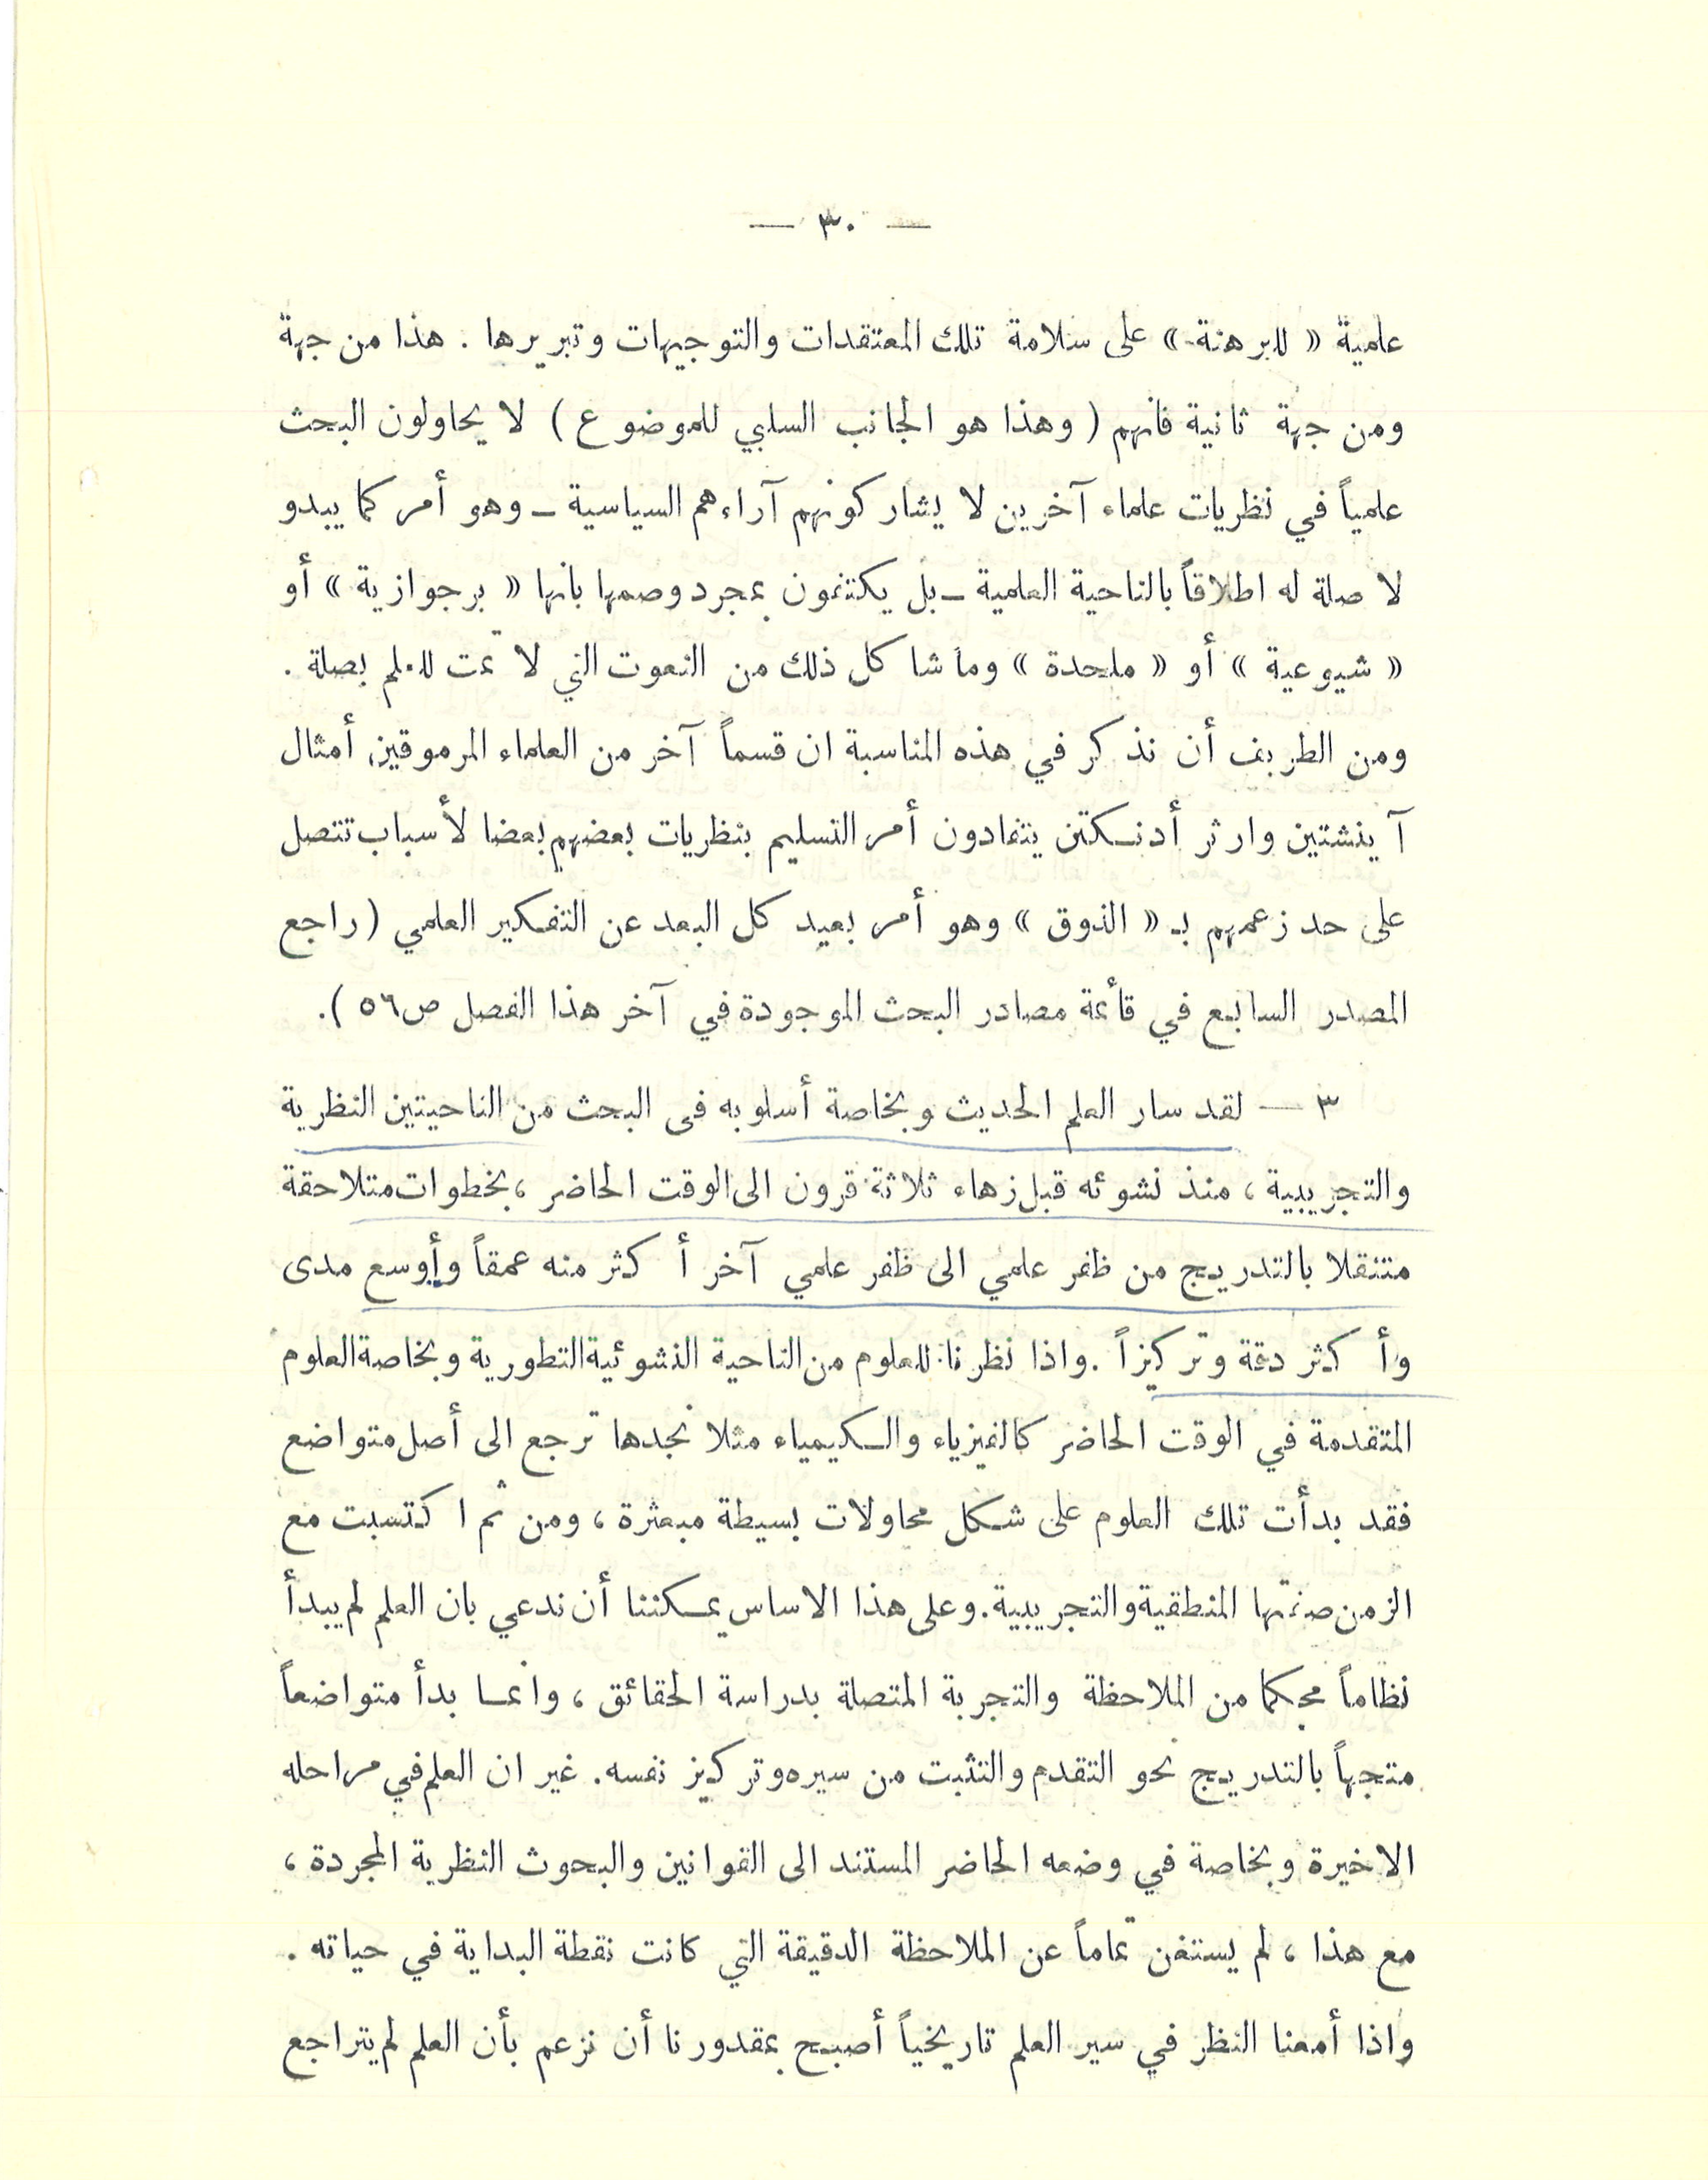 — ٣٠ —
علمية « للبرهنة » على سلامة تلك المعتقدات والتوجيهات وتبريرها . هذا من جهة
ومن جهة ثانية فانهم ( وهذا هو الجانب السلبي للموضوع ) لا يحاولون البحث
علمياً في نظريات علماء آخرين لا يشاركونهم آراءهم السياسية ــ وهو أمر كما يبدو
لا صلة له اطلاقاً بالناحية العلمية ــ بل يكتفون بمجرد وصمها بانها « برجوازية » أو
« شيوعية » أو « ملحدة » وما شاكل ذلك من النعوت التي لا تمت للعلم بصلة .
ومن الطريف أن نذكر في هذه المناسبة ان قسماً آخر من العلماء المرموقين أمثال
آينشتين وارثر أدنكتن يتفادون أمر التسليم بنظريات بعضهم بعضا لأسباب تتصل
على حد زعمهم بـ « الذوق » وهو أمر بعيد كل البعد عن التفكير العلمي ( راجع
المصدر السابع في قائمة مصادر البحث الموجودة في آخر هذا الفصل ص ٥٦ ) .
٣ — لقد سار العلم الحديث وبخاصة أسلوبه في البحث من الناحيتين النظرية
والتجريبية ، منذ نشوئه قبل زهاء ثلاثة قرون الى الوقت الحاضر ، بخطوات متلاحقة
متنقلا بالتدريج من ظفر علمي الى ظفر علمي آخر أكثر منه عمقاً وأوسع مدى
وأكثر دقة وتركيزاً . واذا نظرنا للعلوم من الناحية النشوئية التطورية وبخاصة العلوم
المتقدمة في الوقت الحاضر كالفيزياء والكيمياء مثلا نجدها ترجع الى أصل متواضع
فقد بدأت تلك العلوم على شكل محاولات بسيطة مبعثرة ، ومن ثم اكتسبت مع
الزمن صفتها المنطقية والتجريبية . وعلى هذا الاساس يمكننا أن ندعي بان العلم لم يبدأ
نظاماً محكما من الملاحظة والتجربة المتصلة بدراسة الحقائق ، وانما بدأ متواضعاً
متجهاً بالتدريج نحو التقدم والتثبت من سيره وتركيز نفسه . غير ان العلم في مراحله
الاخيرة وبخاصة في وضعه الحاضر المستند الى القوانين والبحوث النظرية المجردة ،
مع هذا ، لم يستغن تماماً عن الملاحظة الدقيقة التي كانت نقطة البداية في حياته .
واذا أمعنا النظر في سير العلم تاريخياً أصبح بمقدورنا أن نزعم بأن العلم لم يتراجع